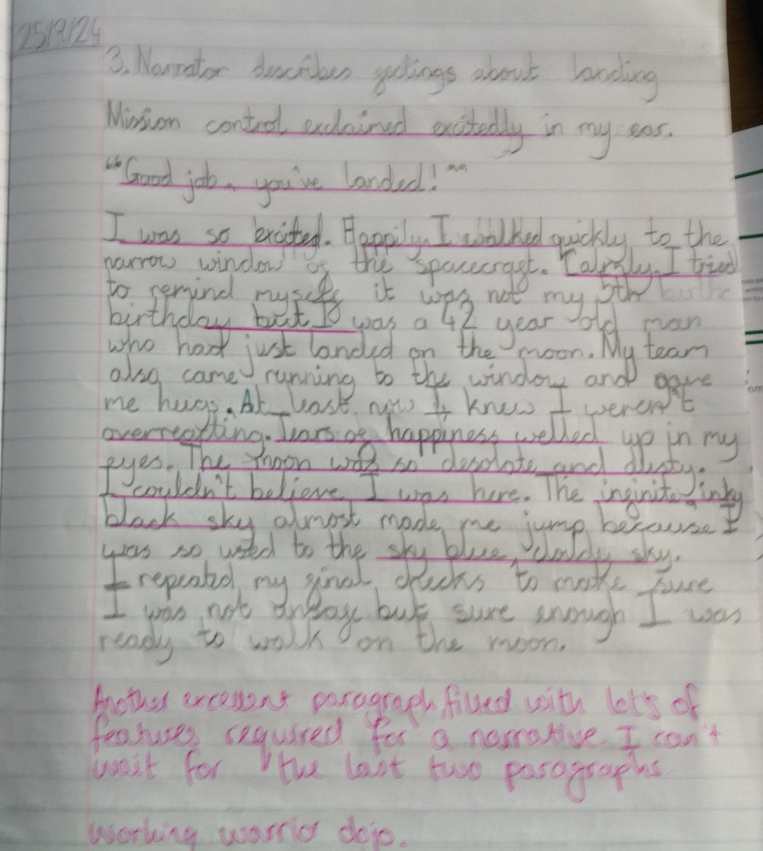 25/9/24
3. Narrator describes feelings about landing
Mission control exclaimed excitedly in my ear.
"Good job, you've landed!"
I was so excited. Happily, I walked quickly to the
narrow window of the spacecraft. Calmly, I tried
to remind myself it was not my 5th
birthday but I was a 42 year old man
who had just landed on the moon. My team
also came running to the window and gave
me hugs. At least now I knew I weren't
overreacting. Tears of happiness welled up in my
eyes. The moon was so desolate and dusty.
I couldn't believe I was here. The infinite, inky
black sky almost made me jump because I
was so used to the sky blue, cloudy sky.
I repeated my final checks to make sure
I was not unsafe but sure enough I was
ready to walk on the moon.
Another excellent paragraph, filled with lots of
features required for a narrative. I can't
wait for the last two paragraphs.
Working warrior dojo.